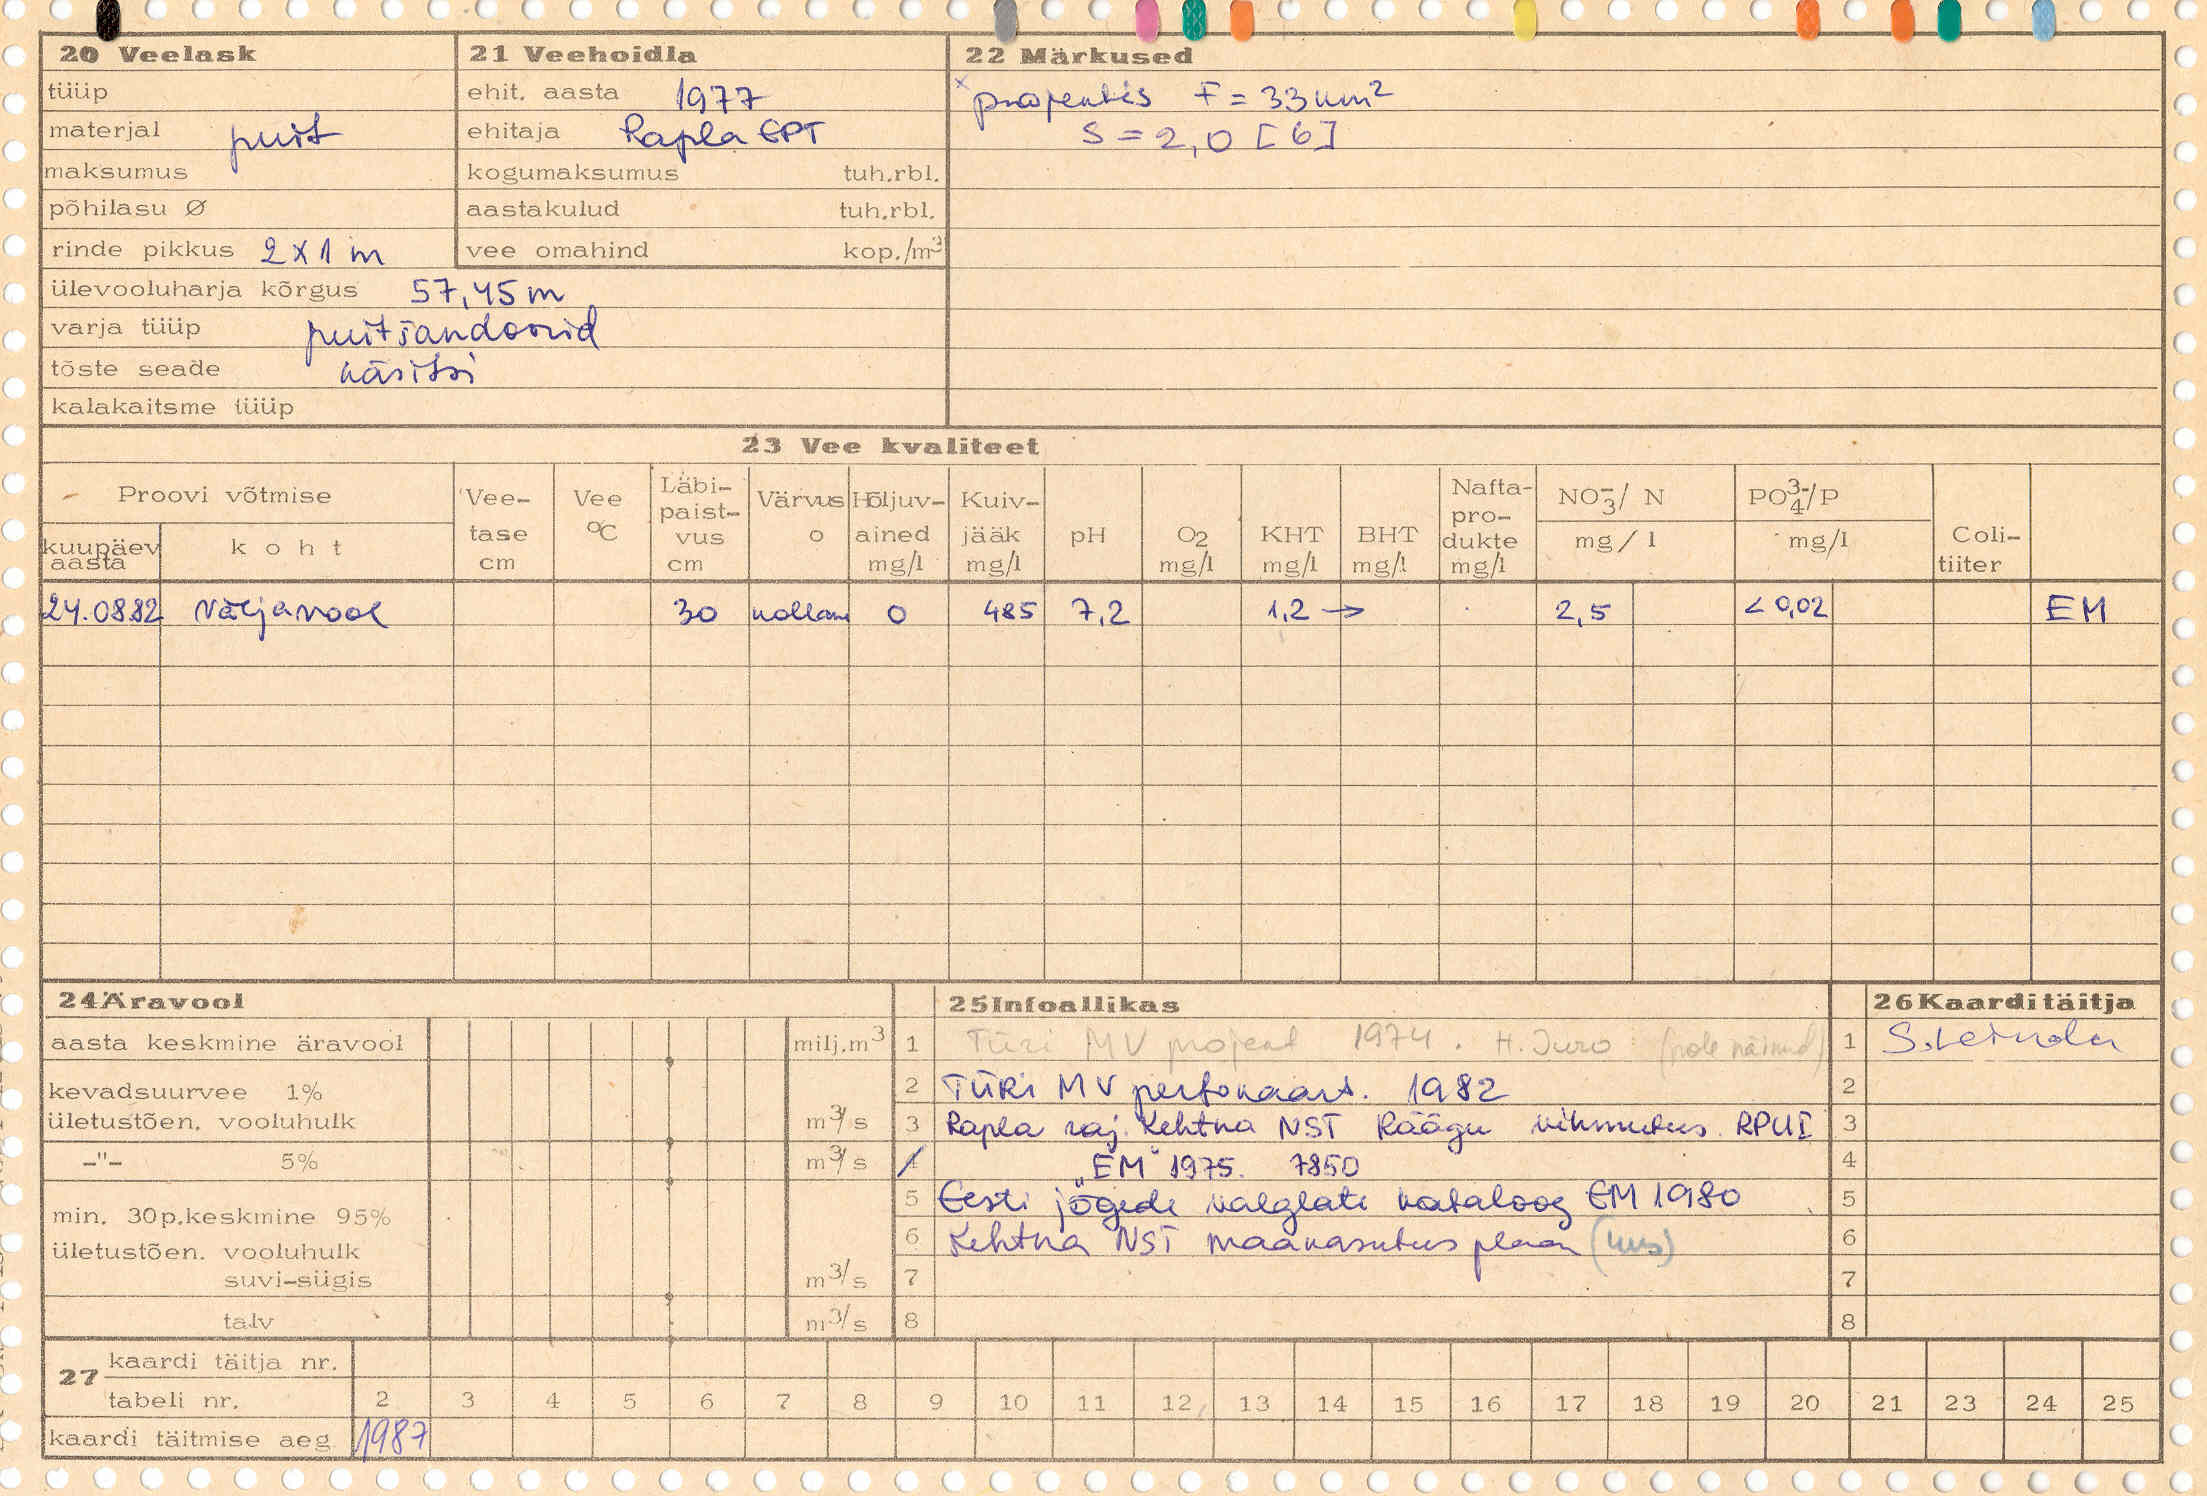 20 Veelask
tüüp
materjal puit
maksumus
põhilasu Ø
rinde pikkus 2 x 1 m
ülevooluharja kõrgus 57,45 m
varja tüüp puitšandoorid
tõste seade käsitsi
kalakaitsme tüüp
21 Veehoidla
ehit. aasta 1977
ehitaja Rapla EPT
kogumaksumus tuh.rbl.
aastakulud tuh.rbl.
vee omahind kop./m³
22 Märkused
x projektis F = 33 km²
S = 2,0 [6]
23 Vee kvaliteet
Proovi võtmise
kuupäev aasta
koht
Vee-tase cm
Vee °C
Läbi-paist-vus cm
Värvus o
Hõljuv-ained mg/l
Kuiv-jääk mg/l
pH
O2 mg/l
KHT mg/l
BHT mg/l
Nafta-pro-dukte mg/l
NO₃⁻/ N mg/l
PO₄³⁻/P mg/l
Coli-tiiter
24.08.82 väljavool 30 kollane 0 485 7,2 1,2 → 2,5 < 0,02 EM
24 Äravool
aasta keskmine äravool milj.m³
kevadsuurvee 1%
ületustõen. vooluhulk m³/s
-"- 5% m³/s
min. 30p.keskmine 95%
ületustõen. vooluhulk
suvi-sügis m³/s
talv m³/s
25 Infoallikas
1 Türi MV projekt 1974. H. Juro (pole näinud)
2 Türi MV perfokaart. 1982
3 Rapla raj. Kehtna NST Räägu vihmutus. RPUI
4 "EM" 1975. 7850
5 Eesti jõgede valglate kataloog EM 1980
6 Kehtna NST maakasutus plaan (uus)
7
8
26 Kaardi täitja
1
2
3
4
5
6
7
8
27 kaardi täitja nr.
tabeli nr. 2 3 4 5 6 7 8 9 10 11 12 13 14 15 16 17 18 19 20 21 23 24 25
kaardi täitmise aeg 1987